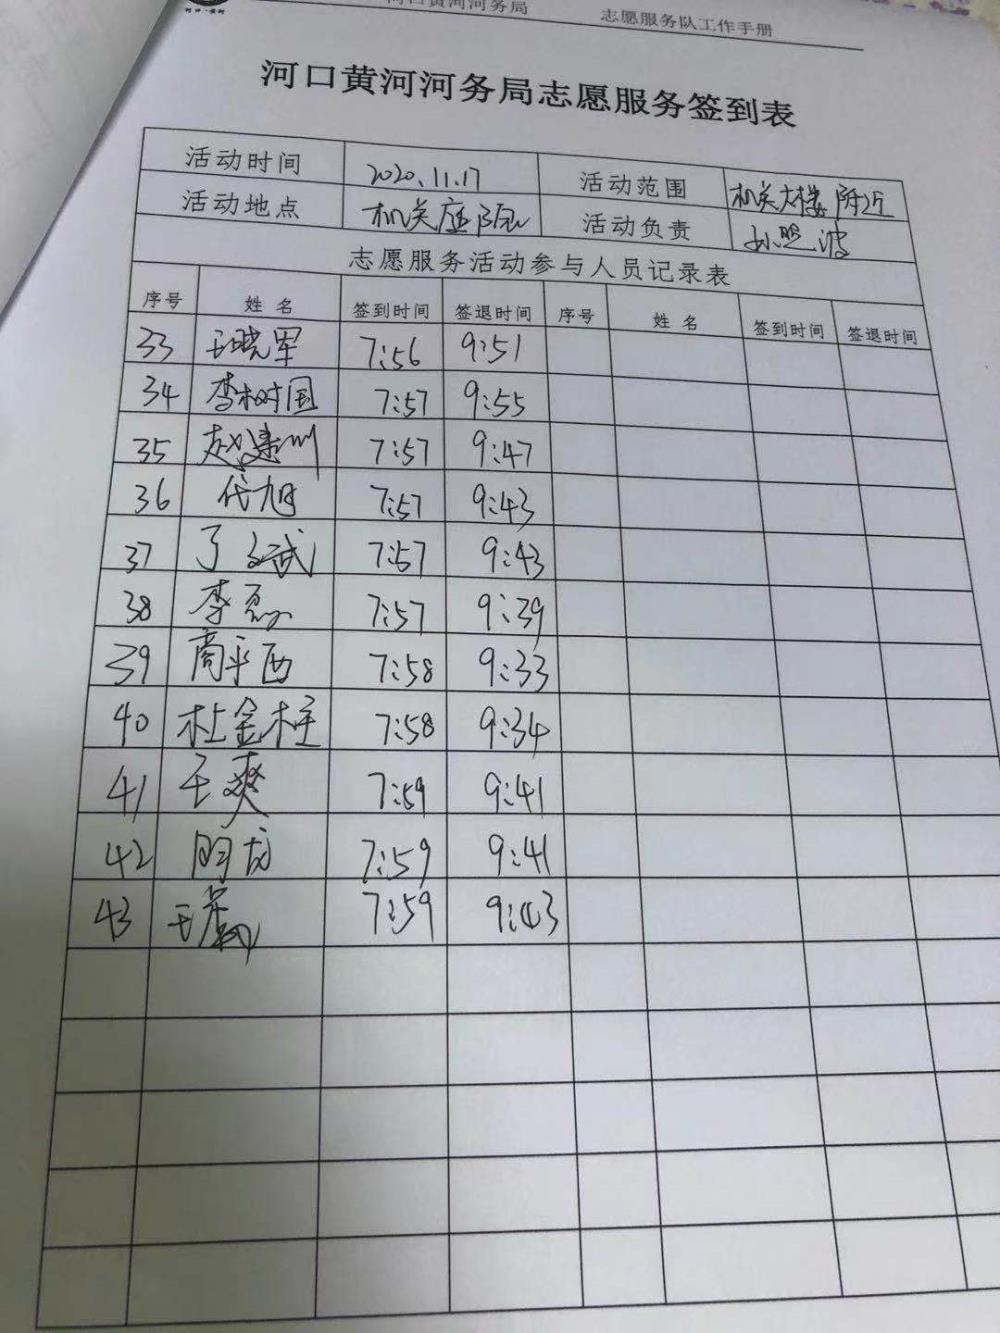 河口黄河河务局 志愿服务队工作手册
河口黄河河务局志愿服务签到表
活动时间 2020.11.17 活动范围 机关大楼附近
活动地点 机关庭院 活动负责 孙照波
志愿服务活动参与人员记录表
序号 姓名 签到时间 签退时间 序号 姓名 签到时间 签退时间
33 王晓军 7:56 9:51
34 李树国 7:57 9:55
35 赵建川 7:57 9:47
36 代旭 7:57 9:43
37 丁文斌 7:57 9:43
38 李磊 7:57 9:39
39 商平西 7:58 9:33
40 杜金柱 7:58 9:34
41 王爽 7:59 9:41
42 7:59 9:41
43 7:59 9:43